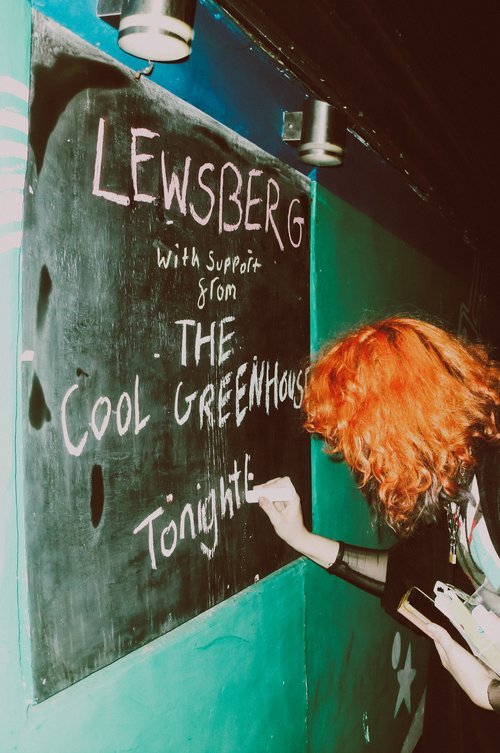 LEWSBERG
with support
from
THE
COOL GREENHOUS
TönightE